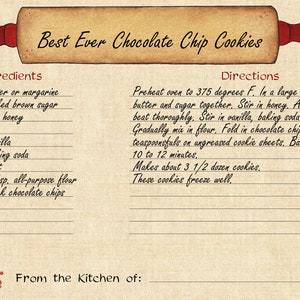 Best Ever Chocolate Chip Cookies
redients
Directions
er or margarine
led brown sugar
honey
illa
ing soda
sp. all-purpose flour
k chocolate chips
Preheat oven to 375 degrees F. In a large
butter and sugar together. Stir in honey. A
beat thoroughly. Stir in vanilla, baking soda
Gradually mix in flour. Fold in chocolate chip
teaspoonsfuls on ungreased cookie sheets. Ba
10 to 12 minutes.
Makes about 3 1/2 dozen cookies.
These cookies freeze well.
From the Kitchen of: